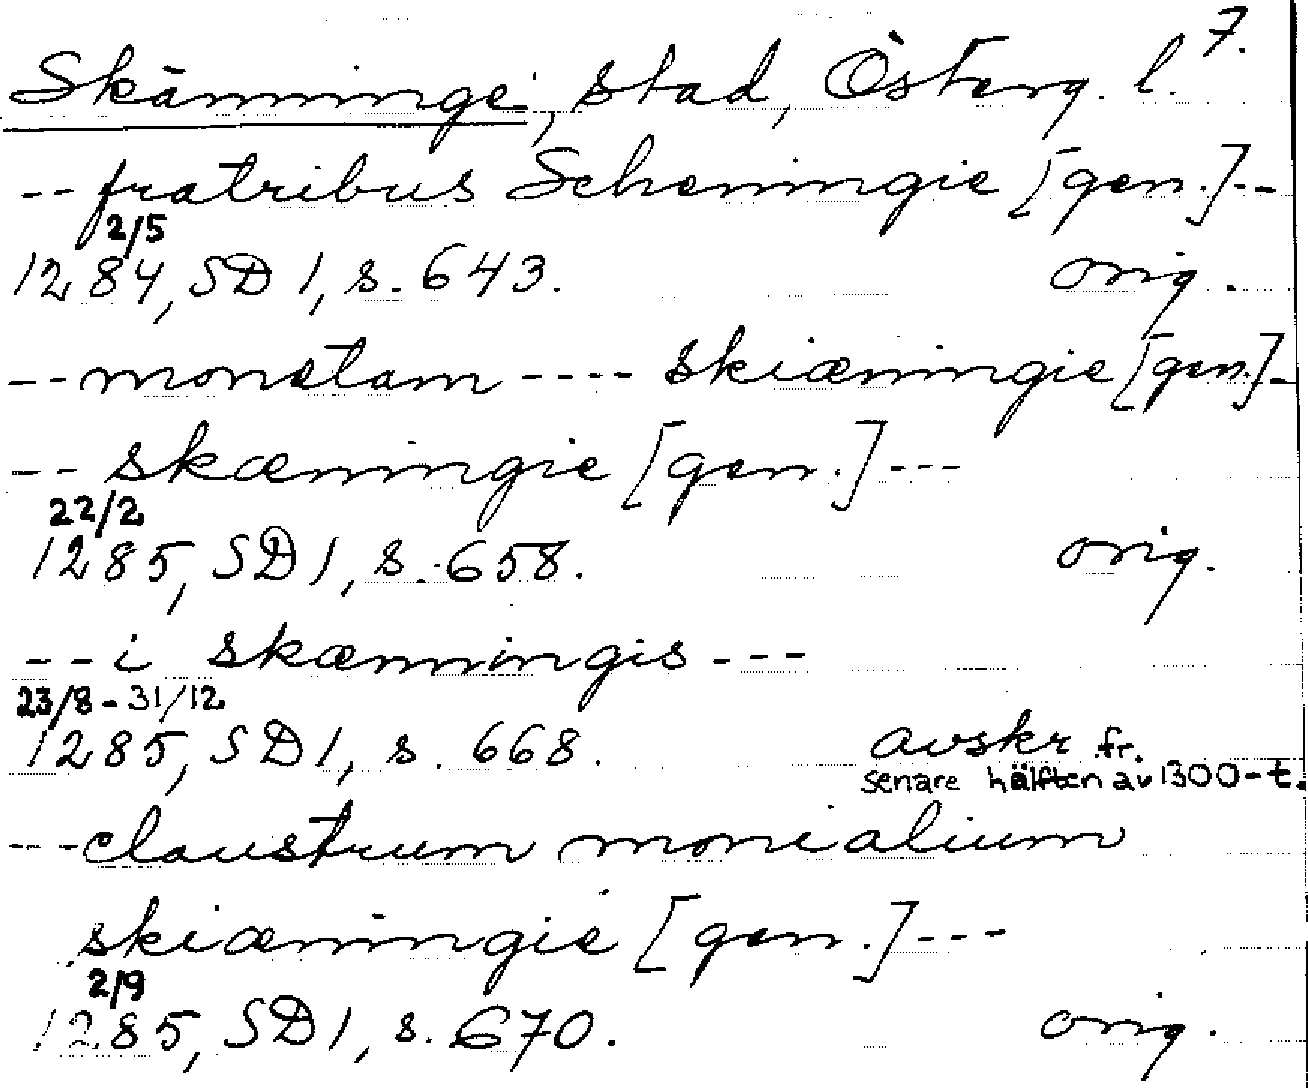 7.
Skänninge, stad, Österg. l.
-- fratribus Scheningie [gen.]--
2/5
1284, SD 1, s. 643. orig.
-- monetam ---- skiæningie [gen.]-
-- skæningie [gen.]---
22/2
1285, SD 1, s. 658. orig.
-- i skænningis ---
23/8 - 31/12
1285, SD 1, s. 668. avskr. fr.
senare hälften av 1300-t.
--- claustrum monialium
skiæningie [gen.]---
2/9
1285, SD 1, s. 670. orig.